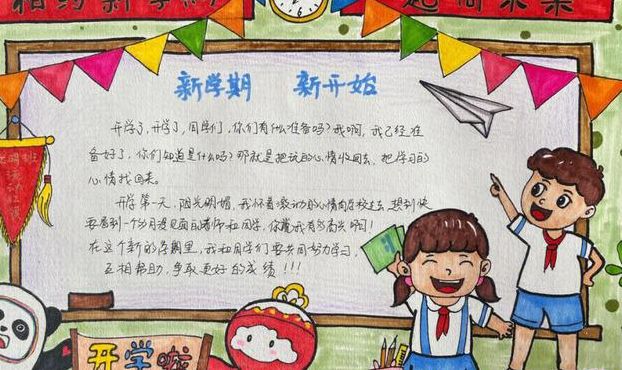 相约新学期 一起向未来
新学期 新开始
开学了,开学了,同学们,你们有什么准备吗?我啊,我已经准
备好了,你们知道是什么吗?那就是把玩的心情收回去,把学习的
心情找回来。
开学第一天,阳光明媚,我怀着激动的心情向学校走去,想到快
要看到一个月没见面的老师和同学,你瞧我有多高兴呀!
在这个新的学期里,我和同学们要共同努力学习,
互相帮助,争取更好的成绩!!!
开学啦